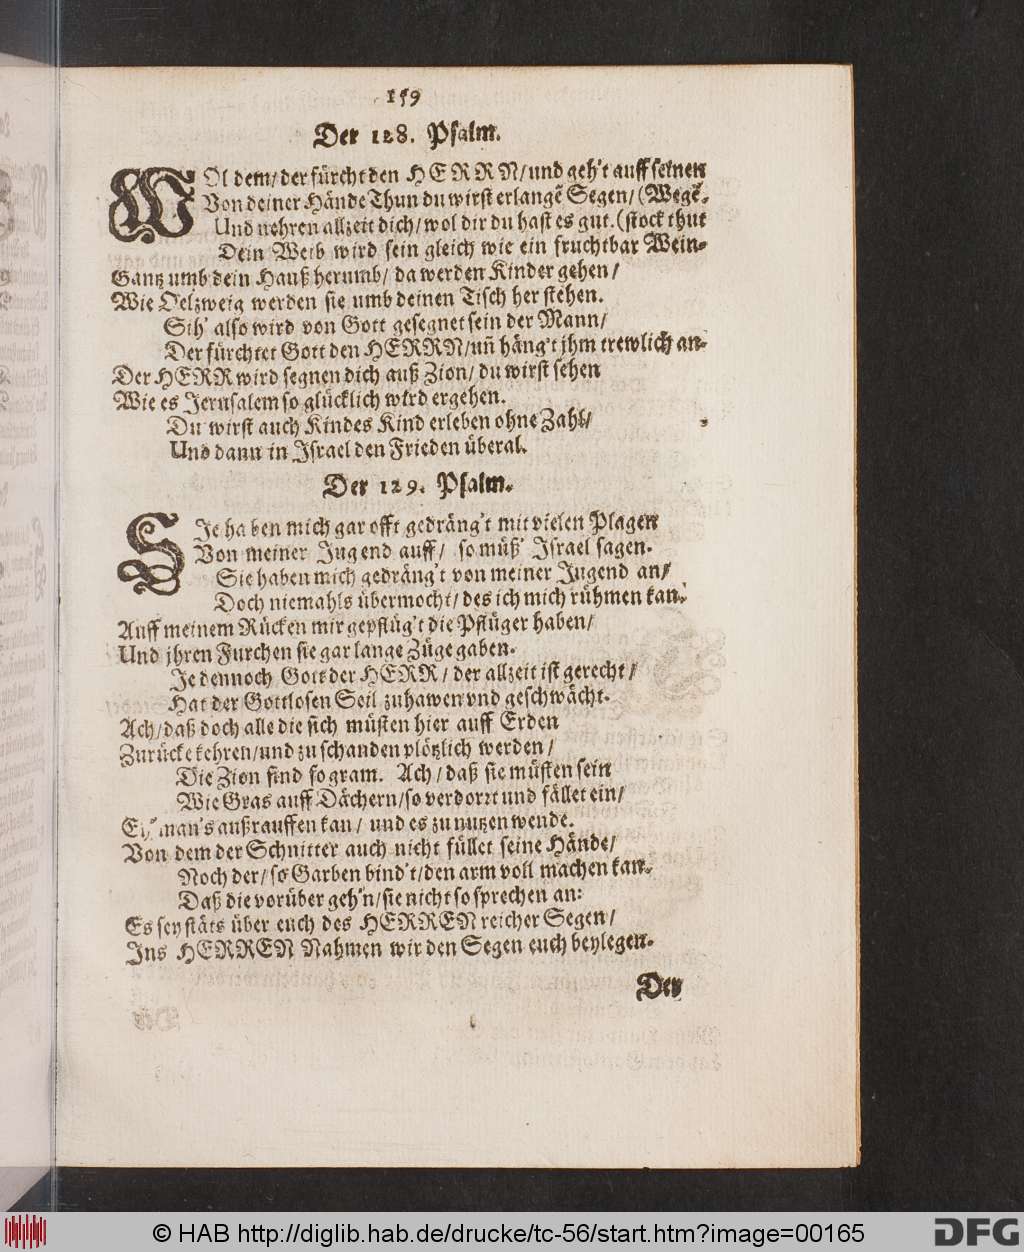 159
Der 128. Psalm.
WOl dem/ der fürcht den HERRN/ und geh't auff seinen
Von deiner Hände Thun du wirst erlangẽ Segen/ (Wegẽ.
Und nehren allzeit dich/ wol dir du hast es gut. (stock thut
Dein Weib wird sein gleich wie ein fruchtbar Wein-
Gantz umb dein Hauß herumb/ da werden Kinder gehen/
Wie Oelzweig werden sie umb deinen Tisch her stehen.
Sih' also wird von Gott gesegnet sein der Mann/
Der fürchtet Gott den HERRN/ uñ häng't jhm trewlich an.
Der HERR wird segnen dich auß Zion/ du wirst sehen
Wie es Jerusalem so glücklich wird ergehen.
Du wirst auch Kindes Kind erleben ohne Zahl/
Und dann in Israel den Frieden überal.
Der 129. Psalm.
SIe haben mich gar offt gedräng't mit vielen Plagen
Von meiner Jugend auff/ so müß' Israel sagen.
Sie haben mich gedräng't von meiner Jugend an/
Doch niemahls übermocht/ des ich mich rühmen kan.
Auff meinem Rücken mir gepflüg't die Pflüger haben/
Und jhren Furchen sie gar lange Züge gaben.
Je dennoch Gott der HERR/ der allzeit ist gerecht/
Hat der Gottlosen Seil zuhawen vnd geschwächt.
Ach/ daß doch alle die sich müsten hier auff Erden
Zurücke kehren/ und zu schanden plötzlich werden/
Die Zion sind so gram. Ach/ daß sie müsten sein
Wie Gras auff Dächern/ so verdorrt und fället ein/
Eh' man's außrauffen kan/ und es zu nutzen wende.
Von dem der Schnitter auch nicht füllet seine Hände/
Noch der/ so Garben bind't/ den arm voll machen kan.
Daß die vorüber geh'n/ sie nicht so sprechen an:
Es sey stäts über euch des HERREN reicher Segen/
Ins HERREN Nahmen wir den Segen euch beylegen.
Der
© HAB http://diglib.hab.de/drucke/tc-56/start.htm?image=00165
DFG